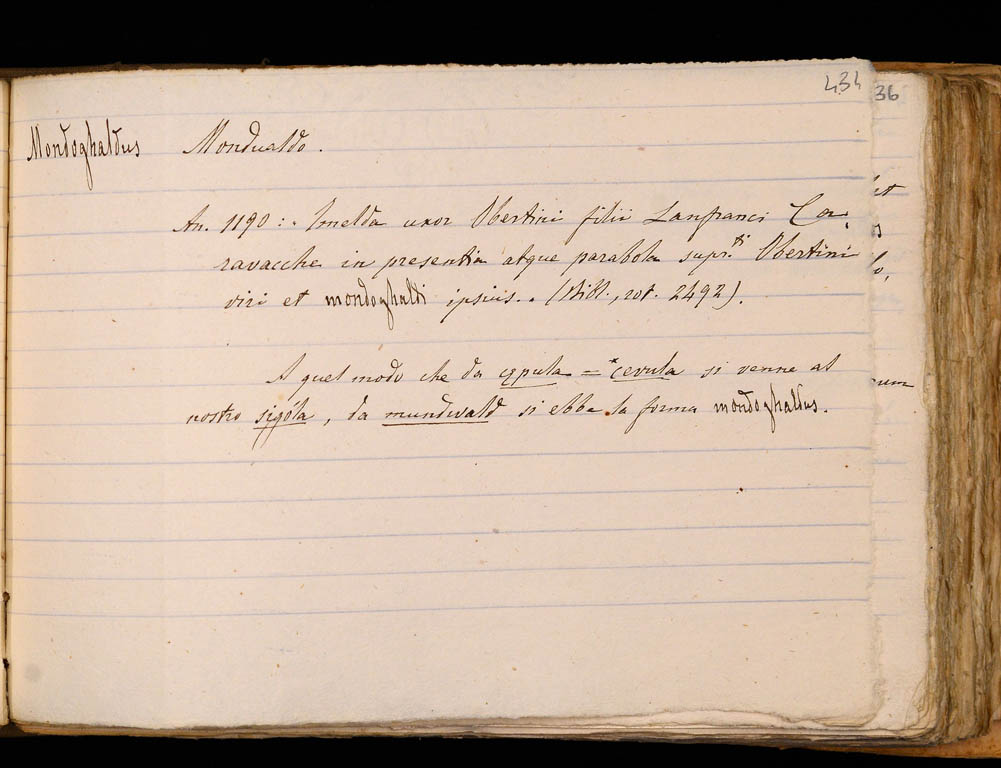 434
36
Mondoghaldus Mondualdo.
An. 1190: Imelda uxor Obertini filii Lanfranci Ca-
ravacche in presentia atque parabola supr.ti Obertini
viri et mondoghaldi ipsius. (Bibl., rot. 2492).
A quel modo che da cepula = *cevula si venne al
nostro sigóla, da mundwald si ebbe la forma mondoghaldus.